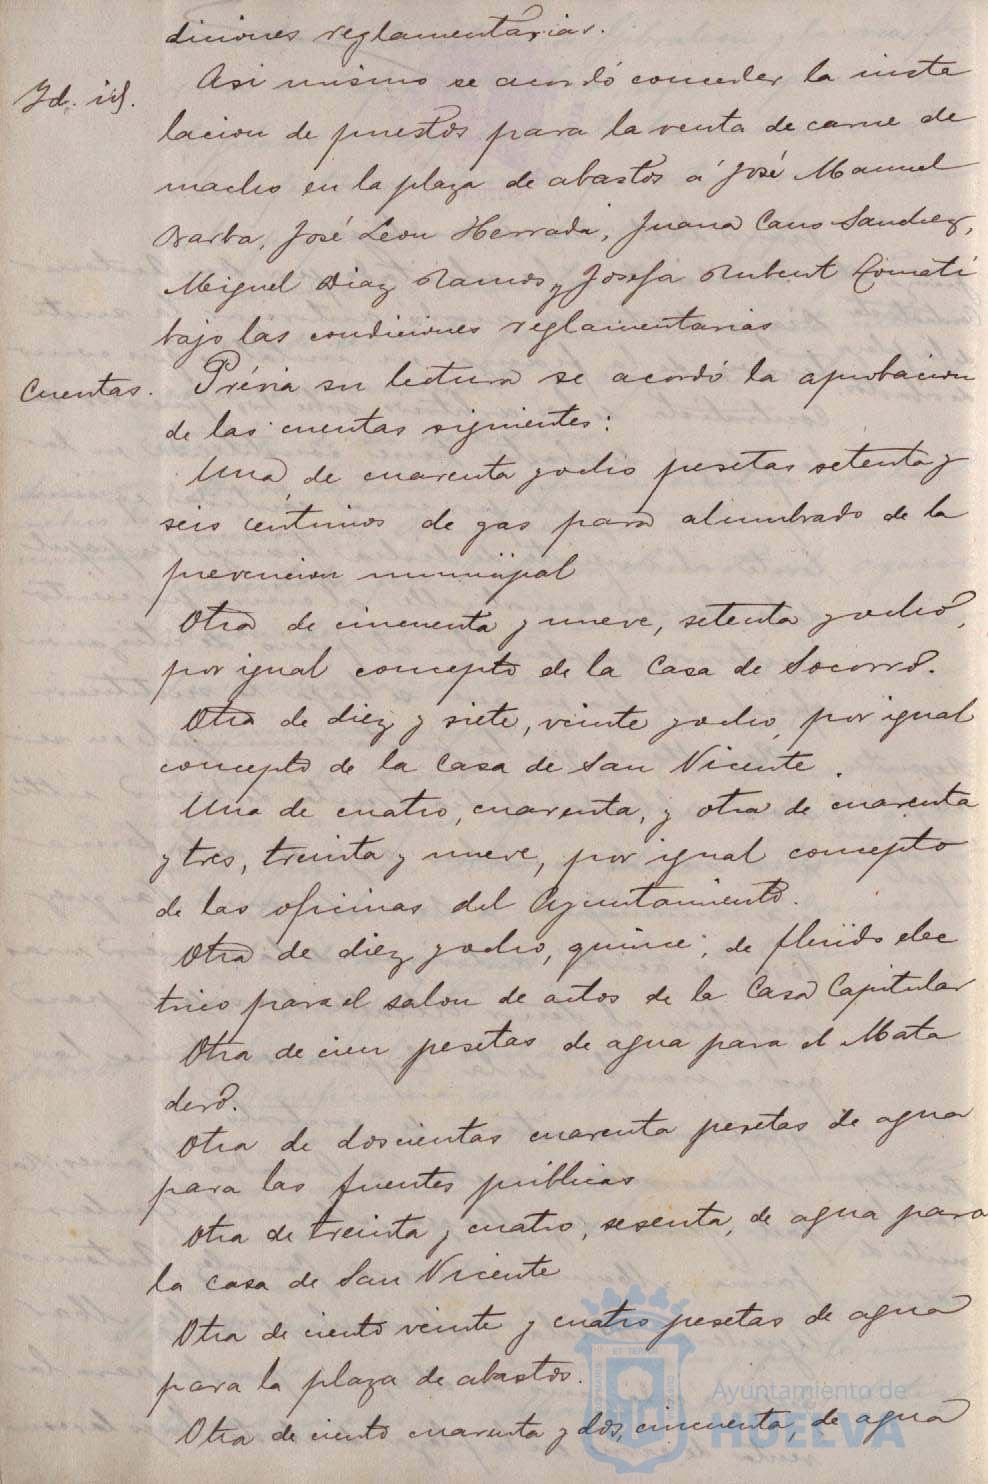 diciones reglamentarias.
Id. id.
Asi mismo se acordó conceder la insta
lacion de puestos para la venta de carne de
macho en la plaza de abastos á José Manuel
Barba, José Leon Herrada, Juana Cano Sanchez,
Miguel Diaz Ramos y Josefa Rubent
bajo las condiciones reglamentarias
Cuentas.
Prévia su lectura se acordó la aprobacion
de las cuentas siguientes:
Una de cuarenta y ocho pesetas setenta y
seis centimos de gas para alumbrado de la
prevencion municipal
Otra de cincuenta y nueve, setenta y ocho,
por igual concepto de la Casa de Socorro.
Otra de diez y siete, veinte y ocho, por igual
concepto de la Casa de San Vicente.
Una de cuatro, cuarenta, y otra de cuarenta
y tres, treinta y nueve, por igual concepto
de las oficinas del Ayuntamiento.
Otra de diez y ocho, quince, de fluido elec
trico para el salon de actos de la Casa Capitular
Otra de cien pesetas de agua para el Mata
dero.
Otra de doscientas cuarenta pesetas de agua
para las fuentes públicas
Otra de treinta y cuatro, sesenta, de agua para
la casa de San Vicente
Otra de ciento veinte y cuatro pesetas de agua
para la plaza de abastos.
Otra de ciento cuarenta y dos, cincuenta, de agua
Ayuntamiento de
HUELVA